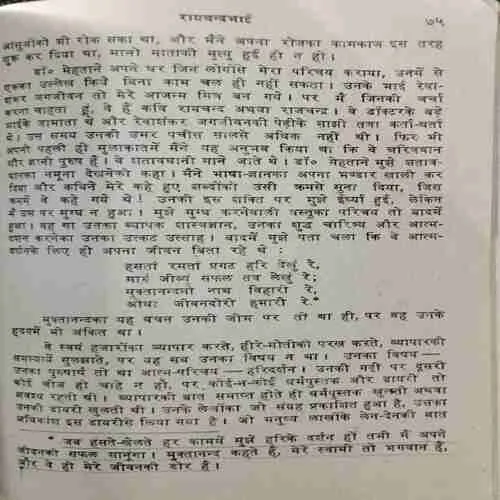 रायचन्दभाई ७५
आंसुओंको भी रोक सका था, और मैंने अपना रोजका कामकाज इस तरह
शुरू कर दिया था, मानो माताकी मृत्यु हुई ही न हो।
डॉ० मेहताने अपने घर जिन लोगोंसे मेरा परिचय कराया, उनमें से
एकका उल्लेख किये बिना काम चल ही नहीं सकता। उनके भाई रेवा-
शंकर जगजीवन तो मेरे आजन्म मित्र बन गये। पर मैं जिनकी चर्चा
करना चाहता हूँ, वे हैं कवि रायचन्द अथवा राजचन्द्र। वे डॉक्टरके बड़े
भाईके जामाता थे और रेवाशंकर जगजीवनकी पेढ़ीके साझी तथा कर्ता-धर्ता
थे। उस समय उनकी उमर पचीस सालसे अधिक नहीं थी। फिर भी
अपनी पहली ही मुलाकातमें मैंने यह अनुभव किया था कि वे चरित्रवान
और ज्ञानी पुरुष हैं। वे शतावधानी माने जाते थे। डॉ० मेहताने मुझे शताव-
धानका नमूना देखनेको कहा। मैंने भाषा-ज्ञानका अपना भण्डार खाली कर
दिया और कविने मेरे कहे हुए शब्दोंको उसी क्रमसे सुना दिया, जिस
क्रममें वे कहे गये थे! उनकी इस शक्ति पर मुझे ईर्ष्या हुई, लेकिन
मैं उस पर मुग्ध न हुआ। मुझे मुग्ध करनेवाली वस्तुका परिचय तो बादमें
हुआ। वह था उनका व्यापक शास्त्रज्ञान, उनका शुद्ध चारित्र्य और आत्म-
दर्शन करनेका उनका उत्कट उत्साह। बादमें मुझे पता चला कि वे आत्म-
दर्शनके लिए ही अपना जीवन बिता रहे थे:
हसतां रमतां प्रगट हरि देखुं रे,
मारुं जीव्युं सफल तव लेखुं रे;
मुक्तानन्दनो नाथ विहारी रे,
ओधा जीवनदोरी हमारी रे।*
मुक्तानन्दका यह वचन उनकी जीभ पर तो था ही, पर वह उनके
हृदयमें भी अंकित था।
वे स्वयं हजारोंका व्यापार करते, हीरे-मोतीकी परख करते, व्यापारकी
समस्यायें सुलझाते, पर यह सब उनका विषय न था। उनका विषय —
उनका पुरुषार्थ तो था आत्म-परिचय — हरिदर्शन। उनकी गद्दी पर दूसरी
कोई चीज हो चाहे न हो, पर कोई-न-कोई धर्मपुस्तक और डायरी तो
अवश्य रहती थी। व्यापारकी बात समाप्त होते ही धर्मपुस्तक खुलती अथवा
उनकी डायरी खुलती थी। उनके लेखोंका जो संग्रह प्रकाशित हुआ है, उसका
अधिकांश इस डायरीसे लिया गया है। जो मनुष्य लाखोंके लेन-देनकी बात
* जब हसते-खेलते हर काममें मुझे हरिके दर्शन हों तभी मैं अपने
जीवनको सफल मानूंगा। मुक्तानन्द कहते हैं, मेरे स्वामी तो भगवान हैं,
और वे ही मेरे जीवनकी डोर हैं।